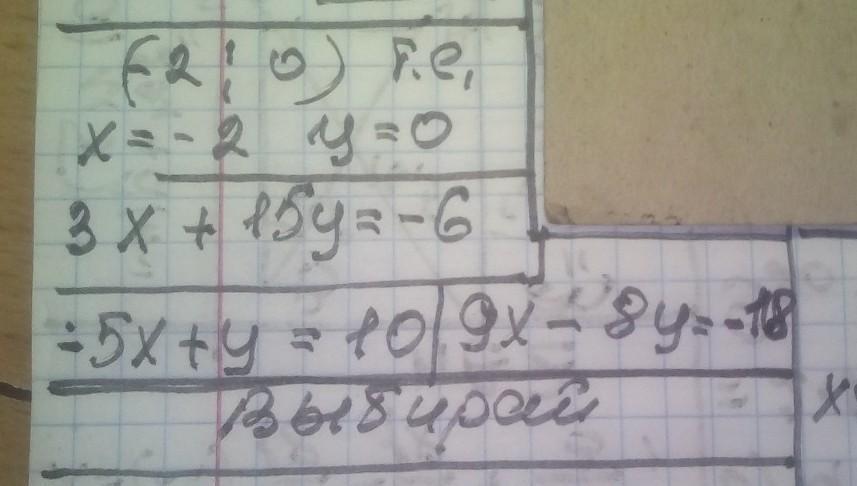 (-2 ; 0) т.е.
x = -2 y = 0
3x + 15y = -6
-5x + y = 10 | 9x - 8y = -18
Выбирай
x